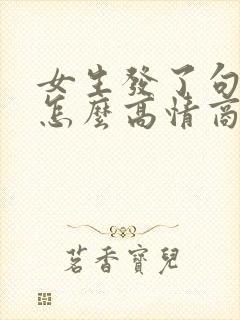 女生發了句
怎麼高情商
茗香寶兒